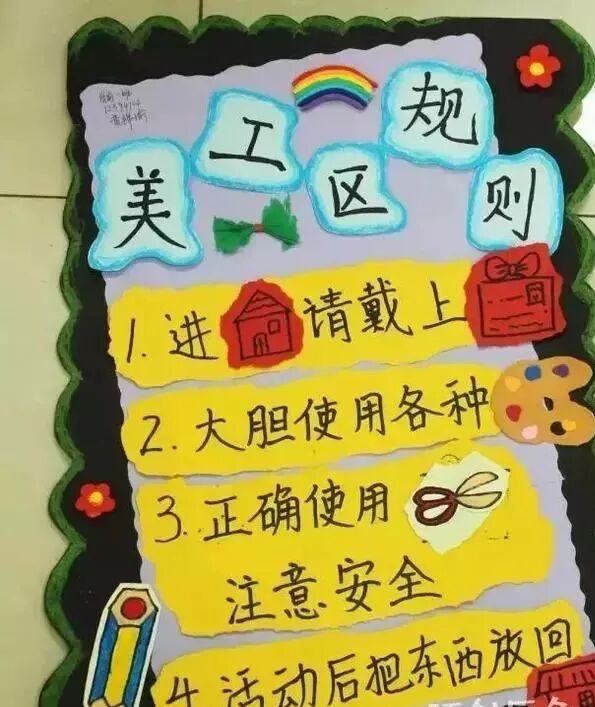 美工区规则
1.进请戴上
2.大胆使用各种
3.正确使用
注意安全
4.活动后把东西放回